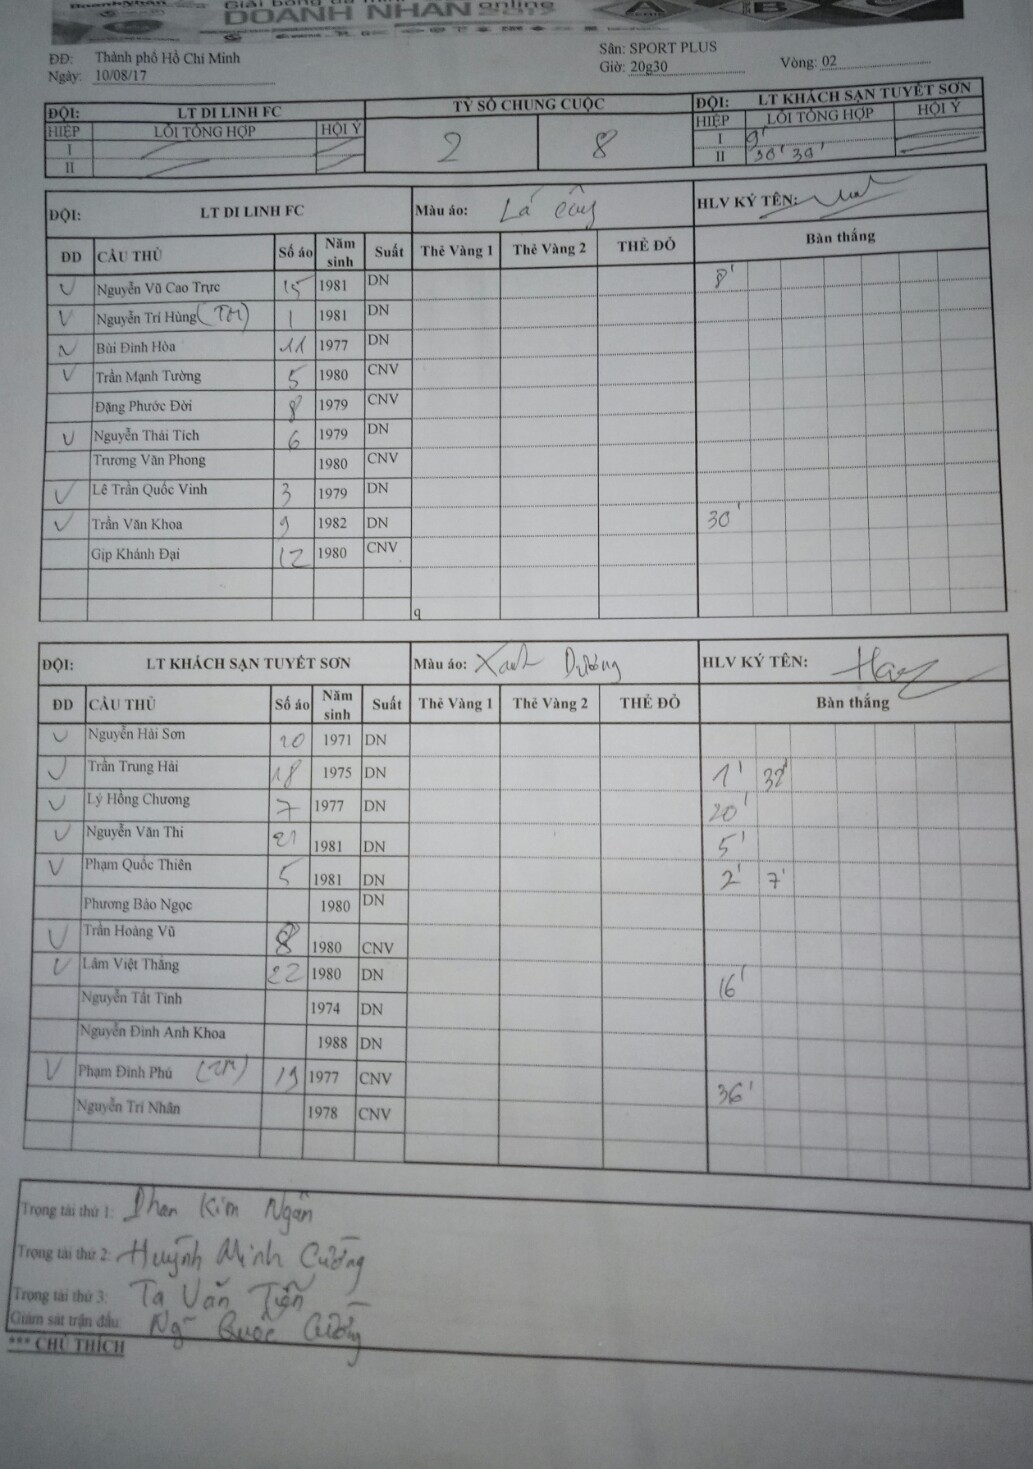 Giải bóng đá mini
DOANH NHÂN online
A B C
ĐĐ: Thành phố Hồ Chí Minh
Ngày: 10/08/17
Sân: SPORT PLUS
Giờ: 20g30 Vòng: 02
ĐỘI: LT DI LINH FC TỶ SỐ CHUNG CUỘC ĐỘI: LT KHÁCH SẠN TUYẾT SƠN
HIỆP LỖI TỔNG HỢP HỘI Ý 2 8 HIỆP LỖI TỔNG HỢP HỘI Ý
I I 9'
II II 30' 39'
ĐỘI: LT DI LINH FC Màu áo: Lá cây HLV KÝ TÊN:
ĐD CẦU THỦ Số áo Năm sinh Suất Thẻ Vàng 1 Thẻ Vàng 2 THẺ ĐỎ Bàn thắng
V Nguyễn Vũ Cao Trực 15 1981 DN 8'
V Nguyễn Trí Hùng (TM) 1 1981 DN
V Bùi Đình Hòa 11 1977 DN
V Trần Mạnh Tường 5 1980 CNV
Đặng Phước Đời 8 1979 CNV
V Nguyễn Thái Tích 6 1979 DN
Trương Văn Phong 1980 CNV
V Lê Trần Quốc Vinh 3 1979 DN
V Trần Văn Khoa 9 1982 DN 30'
Gịp Khánh Đại 12 1980 CNV
q
ĐỘI: LT KHÁCH SẠN TUYẾT SƠN Màu áo: Xanh Dương HLV KÝ TÊN:
ĐD CẦU THỦ Số áo Năm sinh Suất Thẻ Vàng 1 Thẻ Vàng 2 THẺ ĐỎ Bàn thắng
V Nguyễn Hải Sơn 20 1971 DN
V Trần Trung Hải 18 1975 DN 1' 32'
V Lý Hồng Chương 7 1977 DN 20'
V Nguyễn Văn Thi 21 1981 DN 5'
V Phạm Quốc Thiên 5 1981 DN 2' 7'
Phương Bảo Ngọc 1980 DN
V Trần Hoàng Vũ 8 1980 CNV
V Lâm Việt Thắng 22 1980 DN 16'
Nguyễn Tất Tính 1974 DN
Nguyễn Đình Anh Khoa 1988 DN
V Phạm Đình Phú (TM) 19 1977 CNV 36'
Nguyễn Trí Nhân 1978 CNV
Trọng tài thứ 1: Phan Kim Ngân
Trọng tài thứ 2: Huỳnh Minh Cường
Trọng tài thứ 3: Tạ Văn Tiến
Giám sát trận đấu: Ng Quốc Cường
*** CHÚ THÍCH